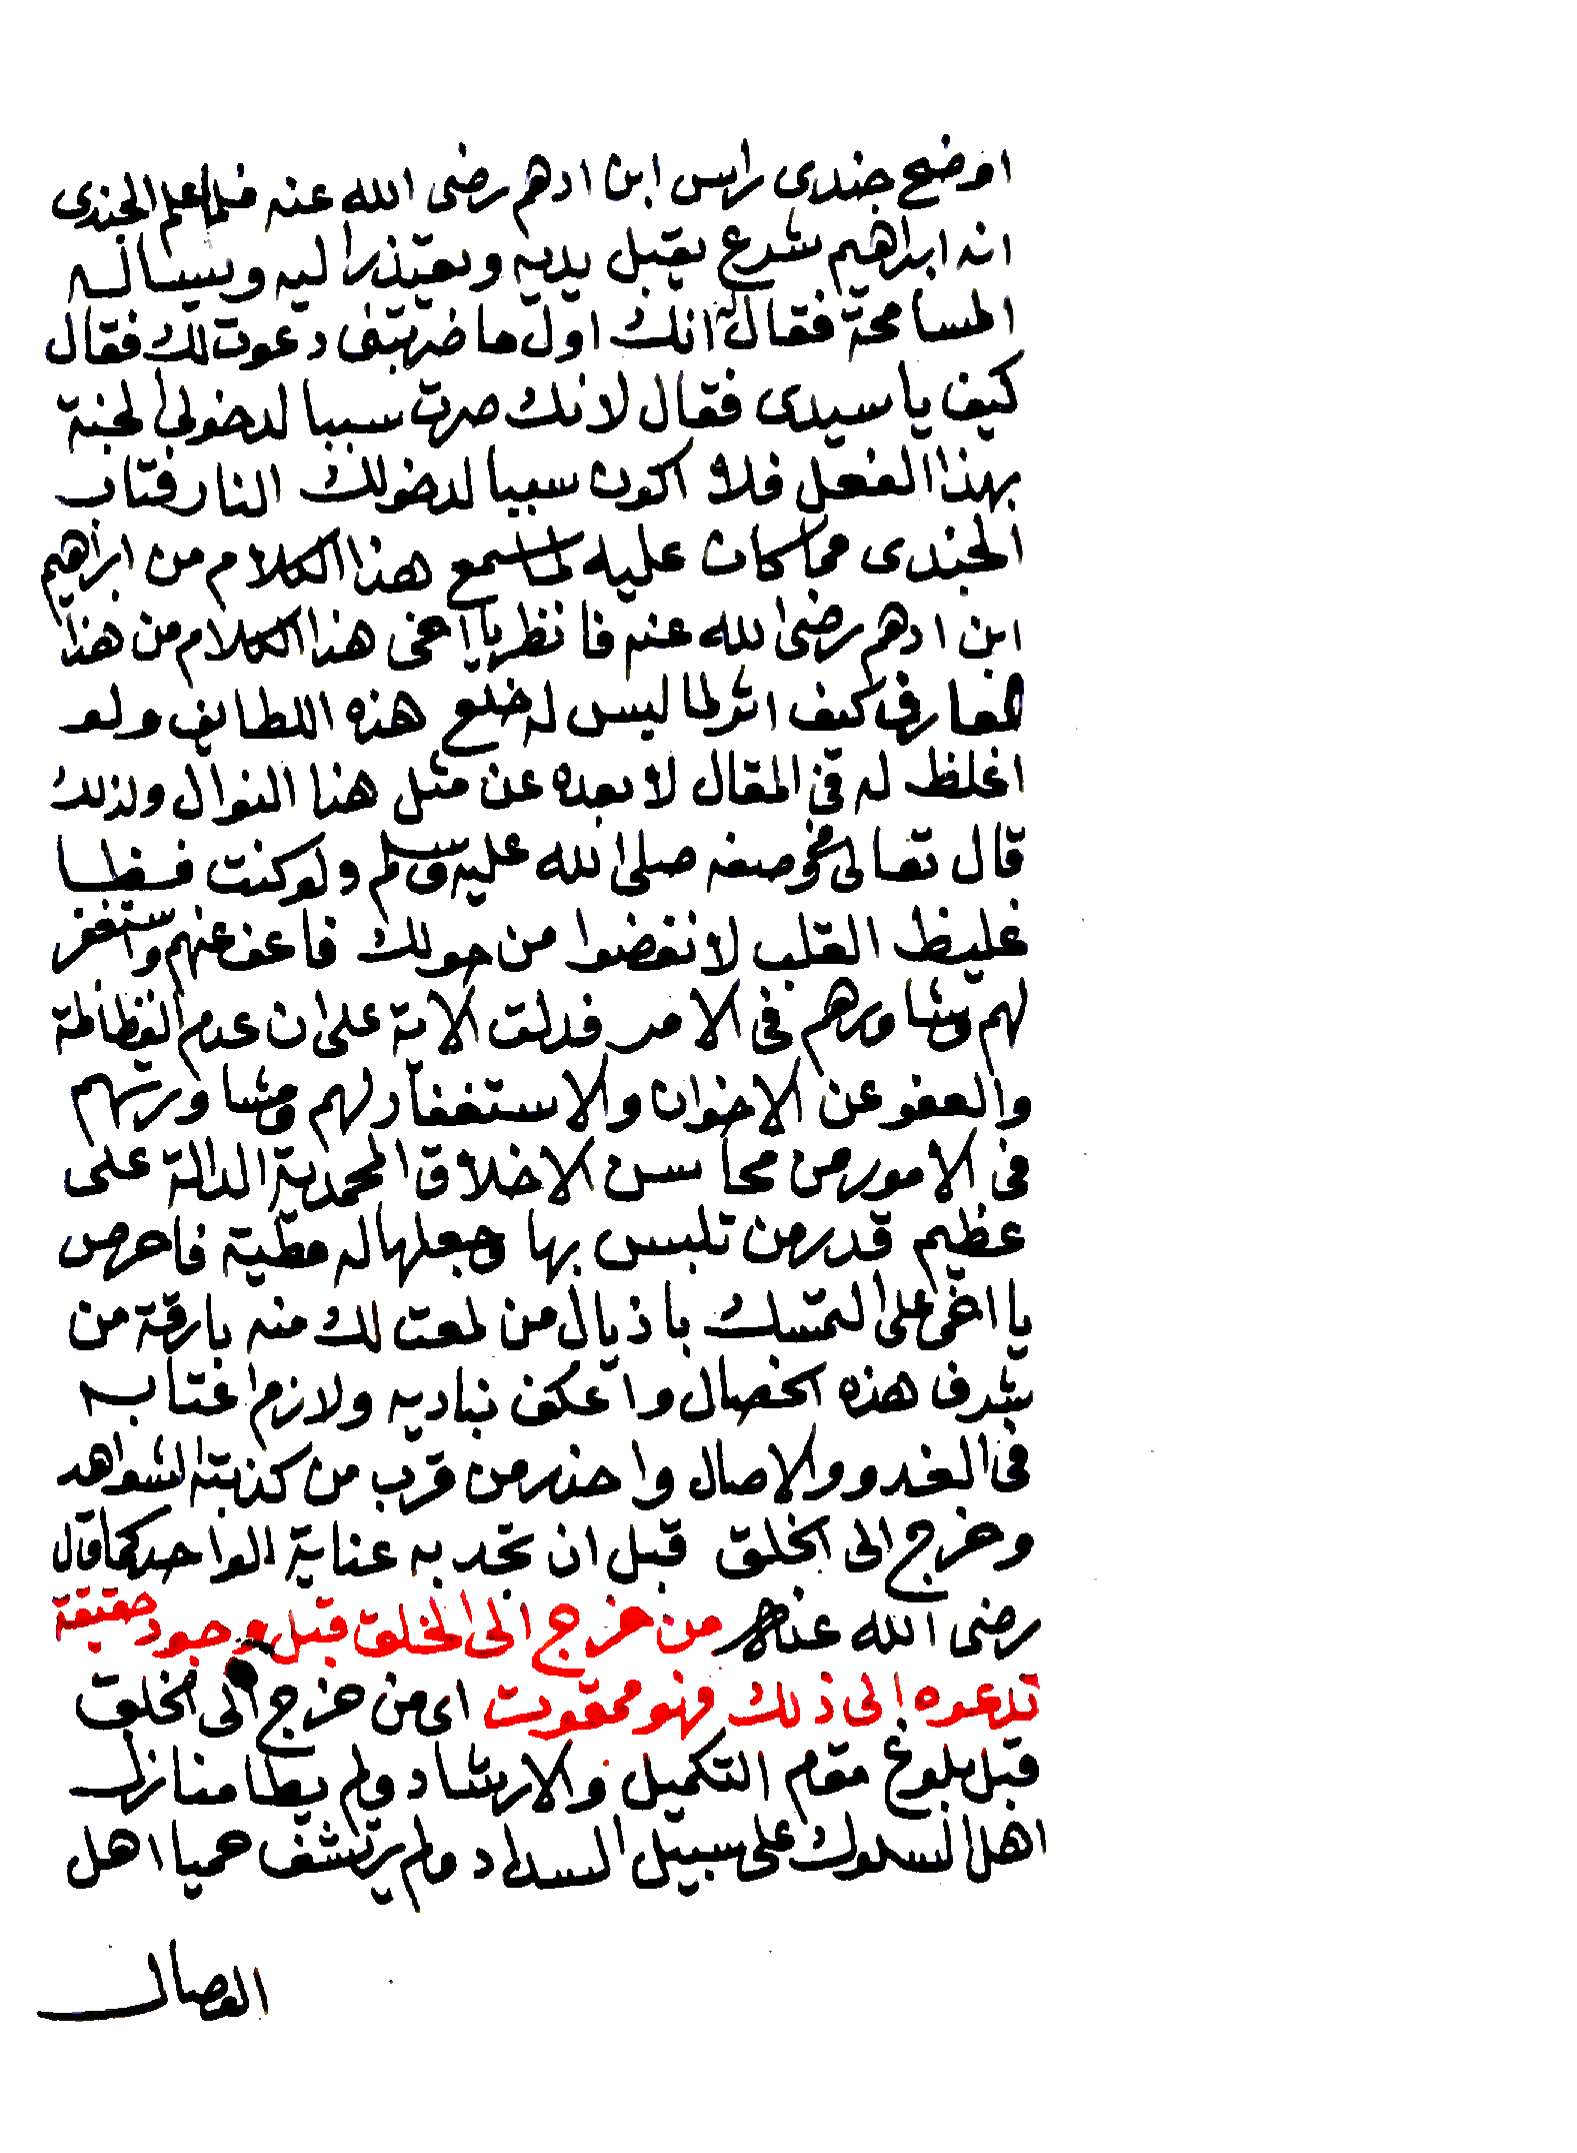 اوضح جندى راس ابن ادهم رضى الله عنه فلما علم الجندى
انه ابراهيم شرع يقبل يديه ويعتذر اليه ويساله
المسامحة فقال له انك اول ما ضربتنى دعوت لك فقال
كيف يا سيدى فقال لانك صرت سببا لدخولى الجنة
بهذا الفعل فلا اكون سببا لدخولك النار فتاب
الجندى مما كان عليه لما سمع هذا الكلام من ابراهيم
ابن ادهم رضى الله عنه فانظر يا اخى هذا الكلام من هذا
العارف كيف اثر لما ليس له خلع هذه اللطايف ولو
اغلظ له فى المقال لا بعده عن مثل هذا النوال ولذلك
قال تعالى فى وصفه صلى الله عليه وسلم ولو كنت فظا
غليظ القلب لانفضوا من حولك فاعف عنهم واستغفر
لهم وشاورهم فى الامر فدلت الاية على ان عدم الفظاظة
والعفو عن الاخوان والاستغفار لهم ومشاورتهم
فى الامور من محاسن الاخلاق المحمدية الدالة على
عظيم قدر من تلبس بها وجعلها له مطية فاحرص
يا اخى على التمسك باذيال من لمعت لك منه بارقة من
شرف هذه الخصال واعكف بناديه ولازم اعتابه
فى الغدو والاصال واحذر من قرب من كذبته الشواهد
وخرج الى الخلق قبل ان تجد به عناية الواحد كما قال
رضى الله عنه من خرج الى الخلق قبل وجود حقيقة
تدعوه الى ذلك فهو ممقوت اى من خرج الى الخلق
قبل بلوغ مقام التكميل والارشاد ولم يطا منازل
اهل السلوك على سبيل السداد ولم يرتشف حميا اهل
الوصال